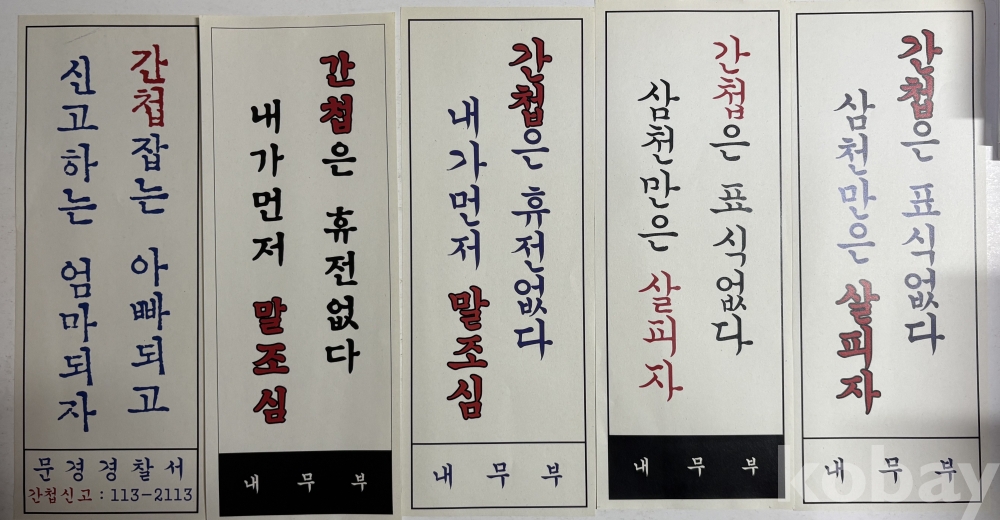 간첩잡는 아빠되고
신고하는 엄마되자
문경경찰서
간첩신고 : 113-2113
간첩은 휴전없다
내가먼저 말조심
내무부
간첩은 휴전없다
내가먼저 말조심
내무부
간첩은 표식없다
삼천만은 살피자
내무부
간첩은 표식없다
삼천만은 살피자
내무부
kobay